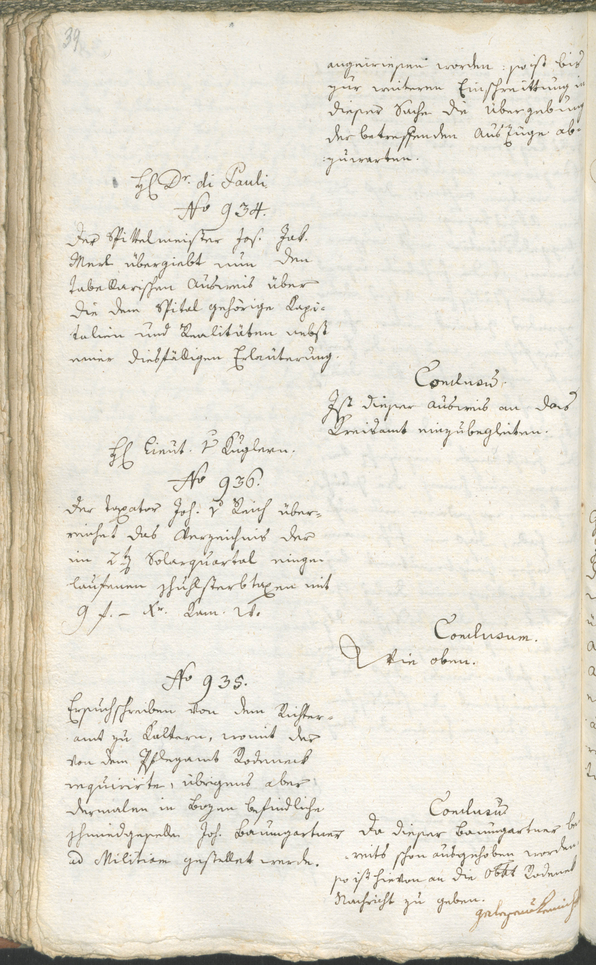 39
angewiesen worden: so ist bis
zur weiteren Einschreittung in
dieser Sache die Übergebung
der betreffenden Auszüge ab-
zuwarten.
H Dr. di Pauli
No 934.
Der Spittelmeister Jos. Jak.
Merl übergiebt nun den
tabellarischen Ausweis über
die dem Spital gehörige Kapi-
talien und Realitäten nebst
einer diesfälligen Erläuterung.
Conclusu.
Ist dieser Ausweis an das
Kreisamt einzubegleiten.
H Lieut. v Kuglern.
No 936.
Der Taxator Joh. v Reich über-
reichet das Verzeichnis der
im 2t Solarquartal einge-
laufenen Schulsterbtaxen mit
9 f. – Kr.
Conclusum.
Wie oben.
No 935.
Ersuchschreiben von dem Richter-
amt zu Kaltern, womit der
von dem Pflegamt Rodeneck
requirirte, übrigens aber
dermalen in Bozen befindliche
Schmiedgeselle Joh. Baumgartner
ad Militiam gestellet werde.
Conclusu
Da dieser Baumgartner be-
reits schon ausgehoben worden
so ist hievon an die Obkt Rodenek
Nachricht zu geben.